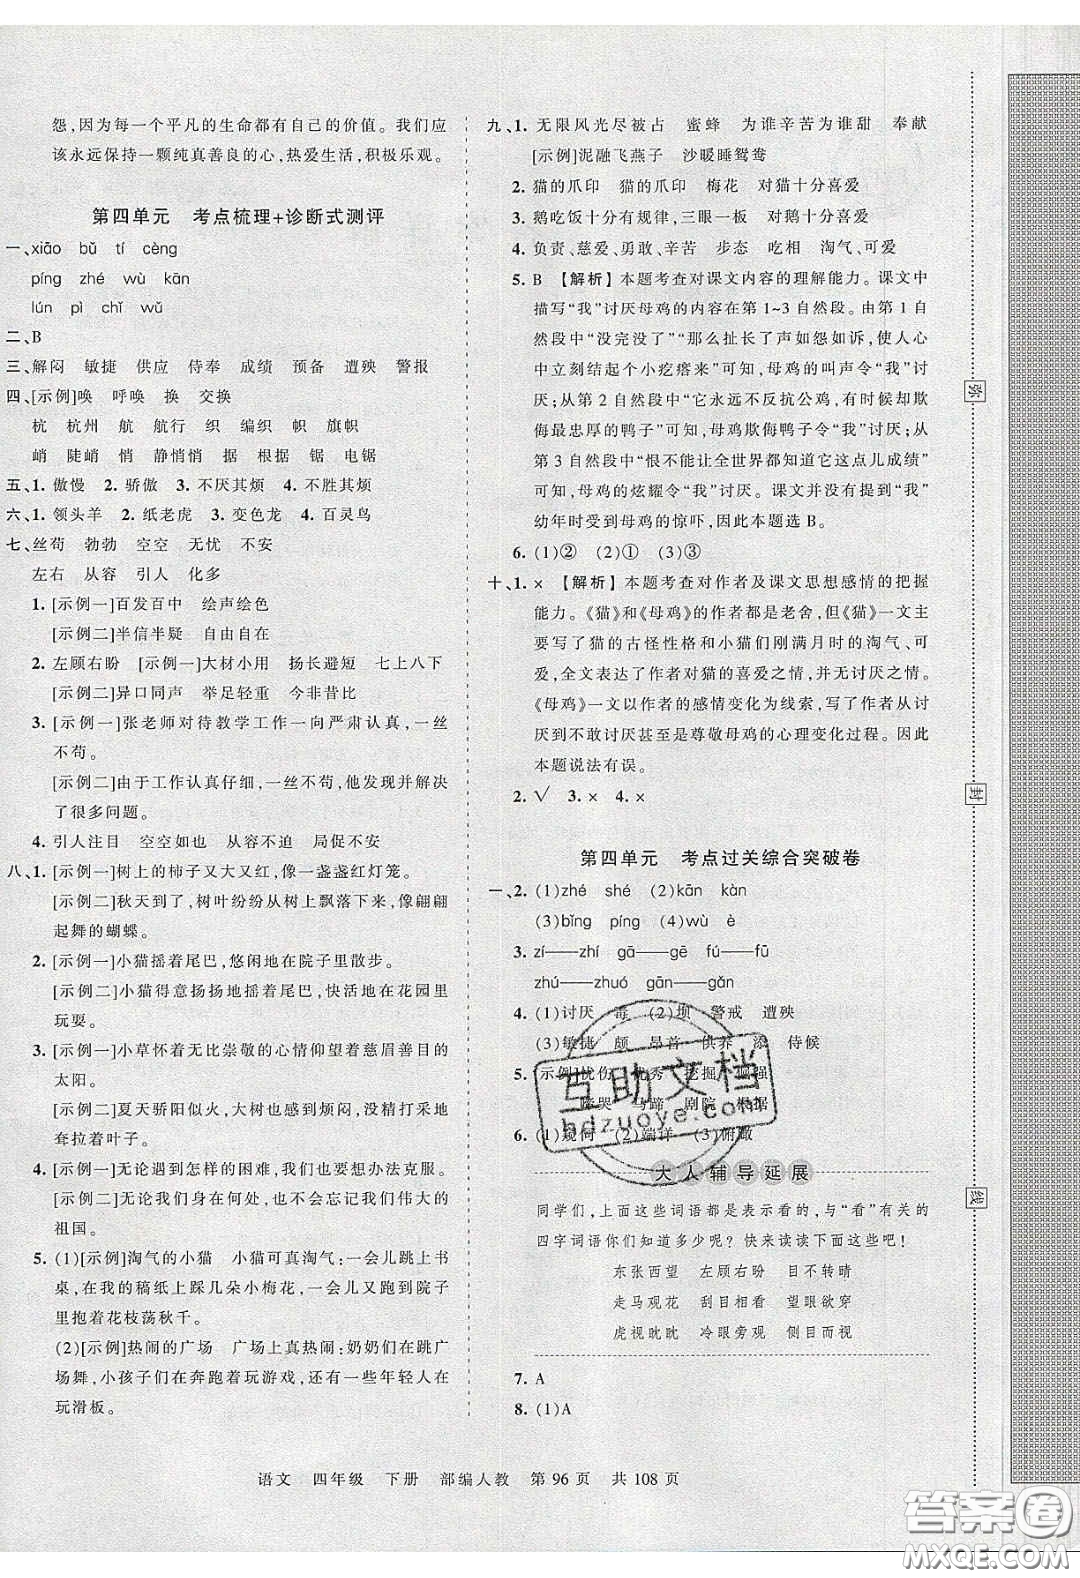 怨,因为每一个平凡的生命都有自己的价值。我们应
该永远保持一颗纯真善良的心,热爱生活,积极乐观。
第四单元 考点梳理+诊断式测评
一、xiāo bǔ tí cèng
píng zhé wù kān
lún pì chǐ wǔ
二、B
三、解闷 敏捷 供应 侍奉 成绩 预备 遭殃 警报
四、[示例]唤 呼唤 换 交换
杭 杭州 航 航行 织 编织 帜 旗帜
峭 陡峭 悄 静悄悄 据 根据 锯 电锯
五、1. 傲慢 2. 骄傲 3. 不厌其烦 4. 不胜其烦
六、1. 领头羊 2. 纸老虎 3. 变色龙 4. 百灵鸟
七、丝苟 勃勃 空空 无忧 不安
左右 从容 引人 化多
1. [示例一]百发百中 绘声绘色
[示例二]半信半疑 自由自在
2. 左顾右盼 [示例一]大材小用 扬长避短 七上八下
[示例二]异口同声 举足轻重 今非昔比
3. [示例一]张老师对待教学工作一向严肃认真,一丝
不苟。
[示例二]由于工作认真仔细,一丝不苟,他最终解决
了很多问题。
4. 引人注目 空空如也 从容不迫 局促不安
八、1. [示例一]树上的柿子又大又红,像一盏盏红灯笼。
[示例二]秋天到了,树叶纷纷从树上飘落下来,像翩翩
起舞的蝴蝶。
2. [示例一]小猫摇着尾巴,悠闲地在院子里散步。
[示例二]小猫得意扬扬地摇着尾巴,快活地在花园里
玩耍。
3. [示例一]小草怀着无比崇敬的心情仰望着慈眉善目的
太阳。
[示例二]夏天骄阳似火,大树也感到烦闷,没精打采地
耷拉着叶子。
4. [示例一]无论遇到怎样的困难,我们都要想办法克服。
[示例二]无论我们身在何处,都不要忘记我们伟大的
祖国。
5. (1)[示例]淘气的小猫 小猫可真淘气:一会儿跳上书
桌,在我的稿纸上踩几朵小梅花,一会儿又跑到院子
里抱着花枝荡秋千。
(2)[示例]热闹的广场 广场上真热闹:奶奶们在跳广
场舞,小孩子们在奔跑着玩游戏,还有一些年轻人在
玩滑板。
九、1. 无限风光尽被占 蜜蜂 为谁辛苦为谁甜 奉献
[示例]泥融飞燕子 沙暖睡鸳鸯
2. 猫的爪印 猫的爪印 梅花 对猫十分喜爱
3. 鹅吃饭十分有规律,三眼一板 对鹅十分喜爱
4. 负责、慈爱、勇敢、辛苦 步态 吃相 淘气、可爱
5. B 【解析】本题考查对课文内容的理解能力。课文中
描写“我”讨厌母鸡的内容在第 1~3 自然段。由第 1
自然段“没完没了”“那么扯长了声如怨如诉,使人心
中立刻结起个小疙瘩来”可知,母鸡的叫声令“我”讨
厌;从第 2 自然段中“它永远不反抗公鸡,有时候却欺
侮最忠厚的鸭子”可知,母鸡欺侮鸭子令“我”讨厌;从
第 3 自然段中“恨不能让全世界都知道它这点儿成绩”
可知,母鸡的炫耀令“我”讨厌。课文并没有提到“我”
幼年时受到母鸡的惊吓,因此本题选 B。
6. (1)② (2)① (3)③
十、1. × 【解析】本题考查对作者及课文思想感情的把握
能力。《猫》和《母鸡》的作者都是老舍,但《猫》一文主
要写了猫的古怪性格和小猫们刚满月时的淘气、可
爱,全文表达了作者对猫的喜爱之情,并无讨厌之情。
《母鸡》一文以作者的感情变化为线索,写了作者从讨
厌到不敢讨厌甚至是尊敬母鸡的心理变化过程。因此
本题说法有误。
2. √ 3. × 4. ×
第四单元 考点过关综合突破卷
一、2. (1)zhé shé (2)kān kàn
(3)bǐng píng (4)wù è
3. zí——zhí gā——gē fú——fū
zhú——zhuó gān——gǎn
4. (1)讨厌 毒 (2)坝 警戒 遭殃
(3)敏捷 颇 昂首 供养 添 侍候
5. [示例]忧伤 优秀 挖掘 倔强
啼哭 马蹄 剧院 根据
6. (1)窥伺 (2)端详 (3)俯瞰
大人辅导延展
同学们,上面这些词语都是表示看的,与“看”有关的
四字词语你们知道多少呢? 快来读读下面这些吧!
东张西望 左顾右盼 目不转睛
走马观花 刮目相看 望眼欲穿
虎视眈眈 冷眼旁观 侧目而视
7. A
8. (1)A
弥
封
线
互助文档
hdzuoye.com
语文 四年级 下册 部编人教 第 96 页 共 108 页
答案圈
MXQE.COM